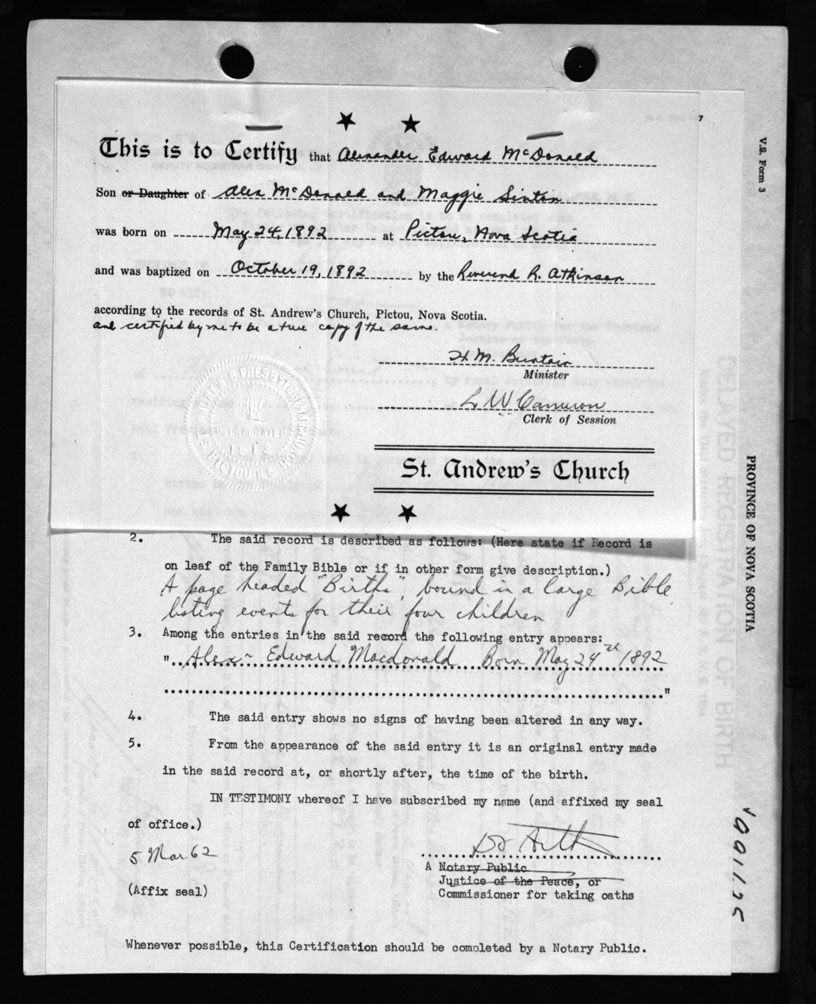 This is to Certify that Alexander Edward McDonald
Son or Daughter of Alex McDonald and Maggie Sinton
was born on May 24, 1892 at Pictou, Nova Scotia
and was baptized on October 19, 1892 by the Reverend R. Atkinson
according to the records of St. Andrew's Church, Pictou, Nova Scotia.
and certified by me to be a true copy of the same.
H M.
Minister
L W Cameron
Clerk of Session
St. Andrew's Church
2. The said record is described as follows: (Here state if Record is
on leaf of the Family Bible or if in other form give description.)
A page headed "Births", bound in a large Bible
listing events for their four children
3. Among the entries in the said record the following entry appears:
"..Alex. Edward Macdonald Born May 24th 1892
"
4. The said entry shows no signs of having been altered in any way.
5. From the appearance of the said entry it is an original entry made
in the said record at, or shortly after, the time of the birth.
IN TESTIMONY whereof I have subscribed my name (and affixed my seal
of office.)
5 Mar 62
(Affix seal)
A Notary Public
Justice of the Peace, or
Commissioner for taking oaths
Whenever possible, this Certification should be completed by a Notary Public.
V.S. Form 3
PROVINCE OF NOVA SCOTIA
DELAYED REGISTRATION OF BIRTH